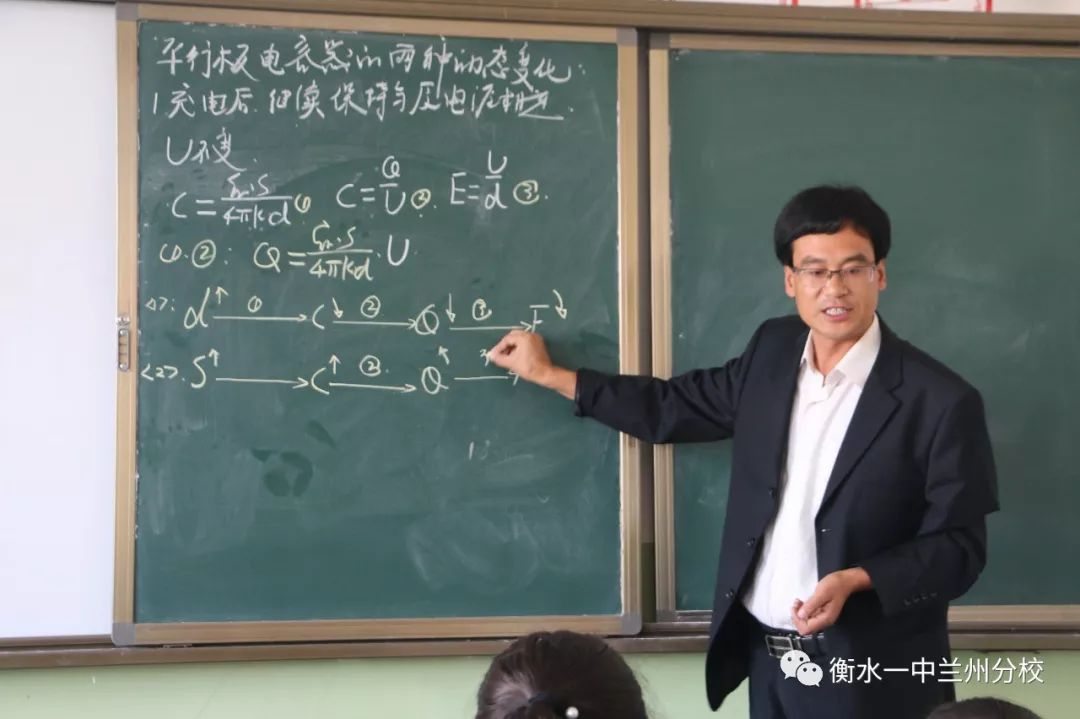 平行板电容器的两种动态变化:
1 充电后 继续保持与电源相连.
U不变.
C=εr·S/4πkd ① C=Q/U ② E=U/d ③.
①·②: Q=εr·S/4πkd·U
<1>: d↑ —①→ C↓ —②→ Q↓ —③→ E↓
<2>. S↑ —→ C↑ —②→ Q↑ —→
衡水一中兰州分校